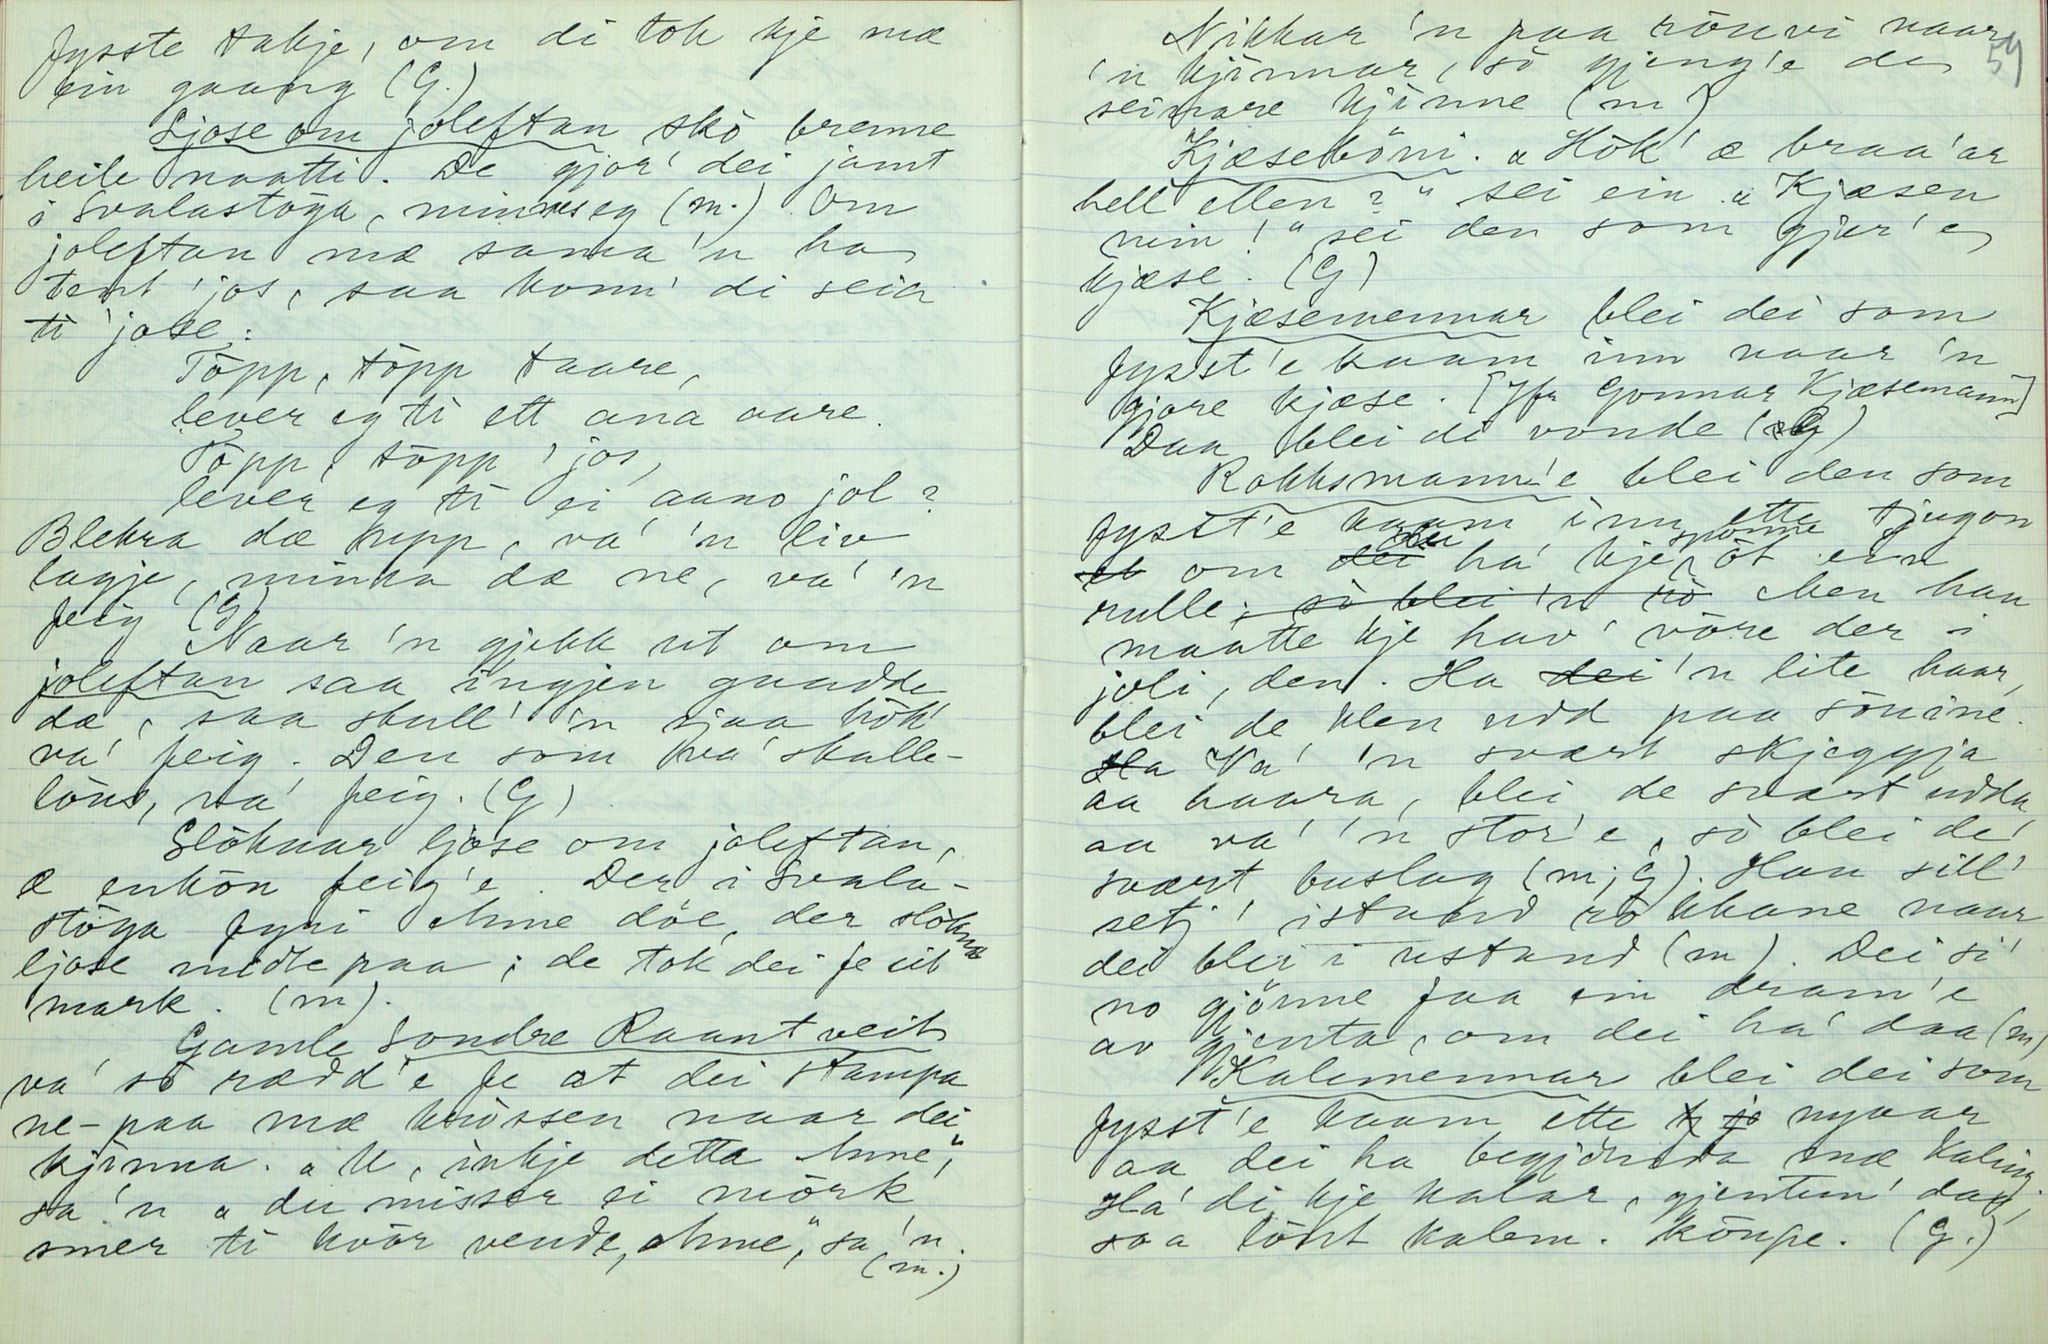 fysste takje, om di tok kje mæ
ein gaang (G.)
Ljose om joleftan skò brenne
heile naatti. De gjor' dei jamt
i Svalastöga, minnes eg (m.) Om
joleftan mæ sama 'n ha
tent 'jos, saa konn' di seia
ti 'jose:
Töpp, töpp taare,
lever eg ti ett ana aare.
Töpp, töpp 'jos,
lever eg ti ei aano jol?
Blekra dæ hupp, va' 'n liv
lagje, minka dæ ne, va' 'n
feig (G)
Naar 'n gjekk ut om
joleftan saa ingjen gaadde
dæ, saa skull' 'n sjaa hök'
va' feig. Den som va' skalle-
löus, va' feig. (G)
Slöknar ljose om joleftan,
æ enkön feig'e. Der i Svala-
stöga fyri Anne döe, der slökna
ljose midt paa; de tok dei fe eit
mark. (m).
Gamle Sondre Raantveit
va' sò rædd'e fe at dei stampa
ne-paa mæ krössen naar dei
kjinna. "U, inkje detta Anne,"
sa 'n "du misser ei mörk
smer ti kvör vende, Anne," sa 'n.
(m.)
59
Nikkar 'n paa röuvi naar
'n kjinnar, sò gjeng'e de
seinare kjinne (m)
Kjæseböni. "Hök' æ braa'ar
hell ellen?" sei ein. "Kjæsen
min!" sei den som gjer'e
kjæse. (G)
Kjæsemennar blei dei som
fysst'e kaam inn naar 'n
gjore kjæse. [Jfr Gonnar Kjæsemann]
Daa blei di vonde (G)
Rokksmann'e blei den som
fysst'e kaam inn ette tjugon
om den ha' kje spönne öt ein
rulle; sò blei 'n rò Men han
maatte kje hav' vöre der i
joli, den. Ha dei 'n lite haar,
blei de klen udd paa söuine.
Va' 'n svært skjeggja
aa haara, blei de svært udda,
aa va' 'n stor'e, sò blei de
svært buslag (m; G). Han sill'
setj' istand rokkane naar
dei blir i ustand (m). Dei si'
no gjönne faa ein dram'e
av gjenta, om dei ha' daa (m)
Kalemennar blei dei som
fysst'e kaam ette nyaar
aa dei ha begjönna mæ kaling.
Ha' di kje kalar, gjentun' daa,
saa lönt kalem. köupe. (G.)